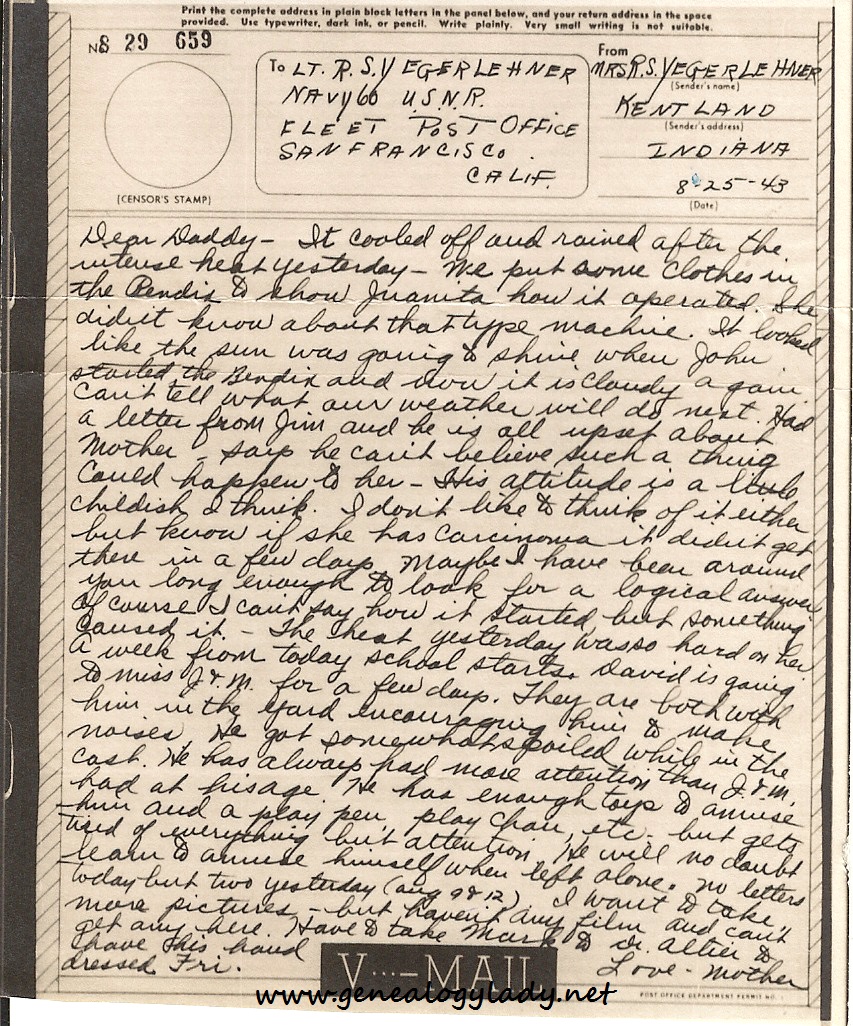 Print the complete address in plain block letters in the panel below, and your return address in the space
provided. Use typewriter, dark ink, or pencil. Write plainly. Very small writing is not suitable.
No. 8 29 659
(CENSOR'S STAMP)
To LT. R. S. YEGERLEHNER
NAVY 60 U.S.N.R.
FLEET POST OFFICE
SAN FRANCISCO
CALIF.
From
MRS R.S. YEGERLEHNER
(Sender's name)
KENTLAND
(Sender's address)
INDIANA
8-25-43
(Date)
Dear Daddy – It cooled off and rained after the
intense heat yesterday – We put some clothes in
the Bendix to show Juanita how it operated. She
didn't know about that type machine. It looked
like the sun was going to shine when John
started the Bendix and now it is cloudy again
can't tell what our weather will do next. Had
a letter from Jim and he is all upset about
Mother – says he can't believe such a thing
could happen to her – His attitude is a little
childish I think. I don't like to think of it either
but know if she has carcinoma it didn't get
there in a few days. Maybe I have been around
you long enough to look for a logical answer
of course I can't say how it started, but something
caused it. – The heat yesterday was so hard on her
A week from today school starts. David is going
to miss J. & M. for a few days. They are both with
him in the yard encouraging him to make
noises. He got somewhat spoiled while in the
cast. He has always had more attention than J. & M.
had at his age. He has enough toys to amuse
him and a play pen, play chair, etc. but gets
tired of everything but attention. He will no doubt
learn to amuse himself when left alone. No letters
today but two yesterday (Aug 9 & 12). I want to take
more pictures – but haven't any film and can't
get any here. Have to take Mark to Dr. Altier to
have his hand
dressed Fri.
Love – Mother
V···–MAIL
www.genealogylady.net
POST OFFICE DEPARTMENT PERMIT NO.